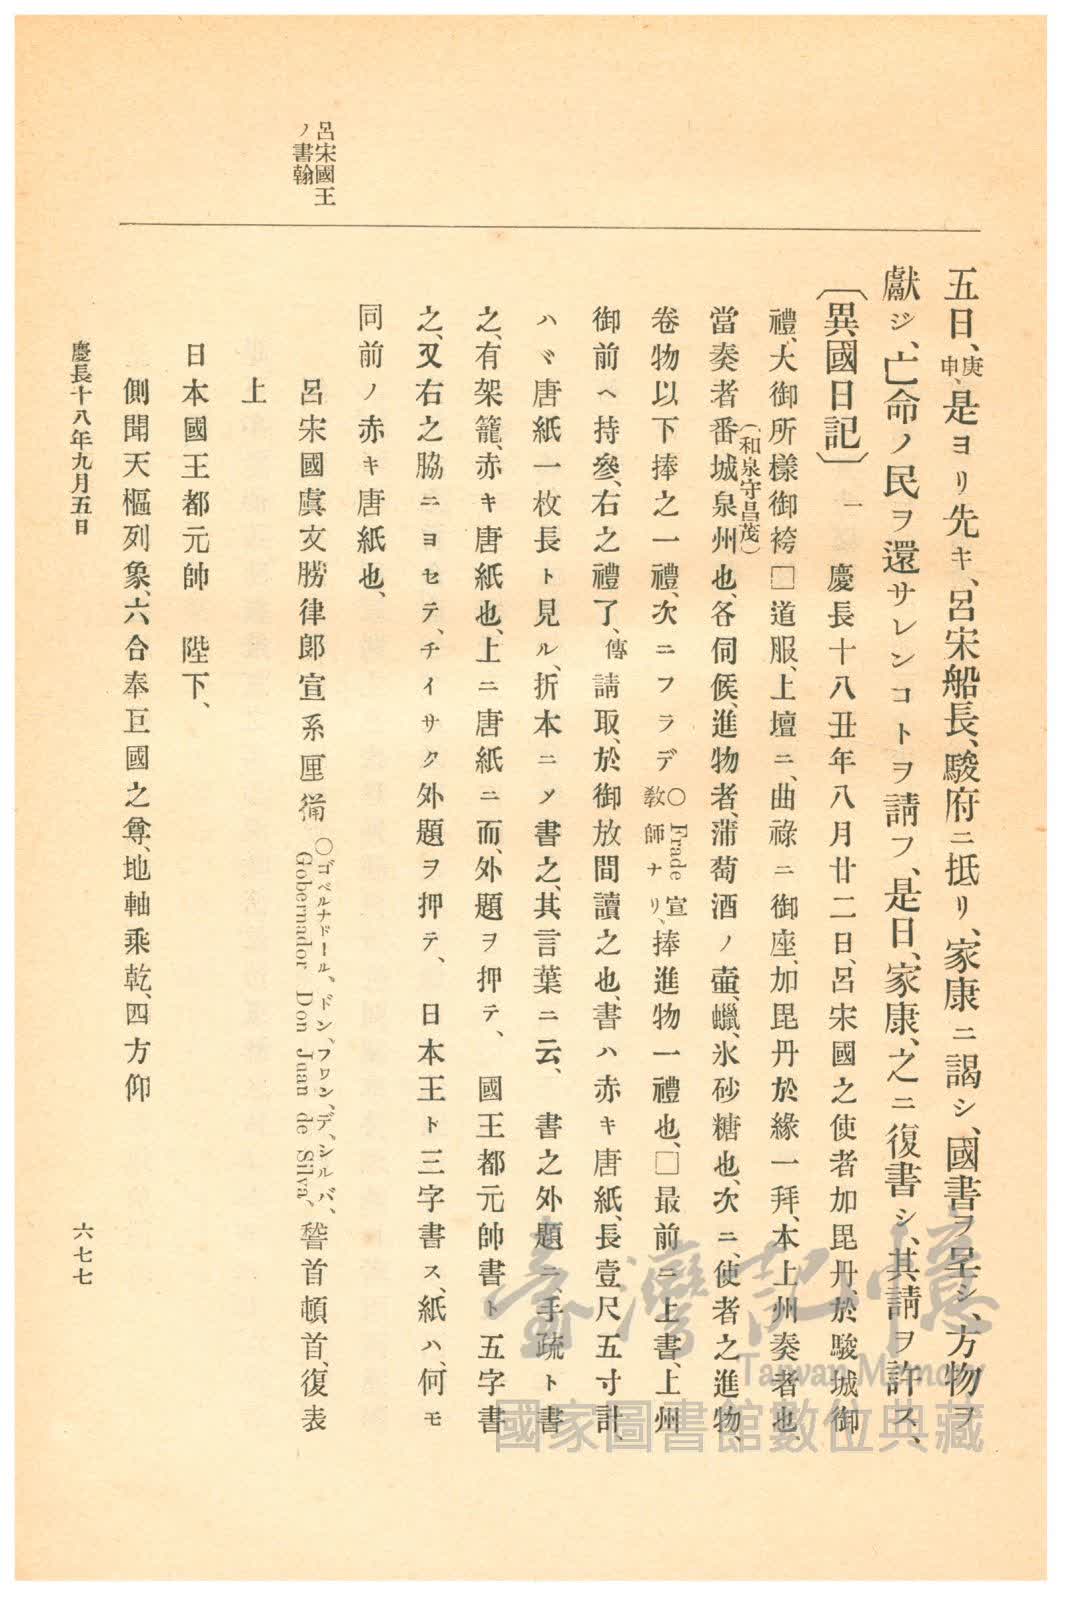 呂宋國王
ノ書翰
五日、庚申、是ヨリ先キ、呂宋船長、駿府ニ抵リ、家康ニ謁シ、國書ヲ呈シ、方物ヲ
獻ジ、亡命ノ民ヲ還サレンコトヲ請フ、是日、家康、之ニ復書シ、其請ヲ許ス、
〔異國日記〕一 慶長十八丑年八月廿二日、呂宋國之使者加毘丹、於駿城御
禮、大御所樣御袴□道服、上壇ニ、曲祿ニ御座、加毘丹於緣一拜、本上州奏者也、
當奏者番城泉州(和泉守昌茂)也、各伺候、進物者、蒲萄酒ノ壷、蠟、氷砂糖也、次ニ、使者之進物、
卷物以下捧之一禮、次ニフラデ○Frade宣敎師ナリ、捧進物一禮也、□最前ニ上書、上州
御前ヘ持參、右之禮了、傳請取、於御放間讀之也、書ハ赤キ唐紙、長壹尺五寸計、
ハヾ唐紙一枚長ト見ル、折本ニメ書之、其言葉ニ云、 書之外題ニ、手疏ト書
之、有架籠、赤キ唐紙也、上ニ唐紙ニ而、外題ヲ押テ、 國王都元帥書ト五字書
之、又右之脇ニヨセテ、チイサク外題ヲ押テ、 日本王ト三字書ス、紙ハ、何モ
同前ノ赤キ唐紙也、
呂宋國虞文勝律郎宣系匣㣲○ゴベルナドール、ドン、フワン、デ、シルバ、Gobernador Don Juan de Silva、䭫首頓首、復表
上
日本國王都元帥 陛下、
側聞天樞列象、六合奉巨國之尊、地軸乘乾、四方仰
慶長十八年九月五日
六七七
臺灣記憶
Taiwan Memory
國家圖書館數位典藏